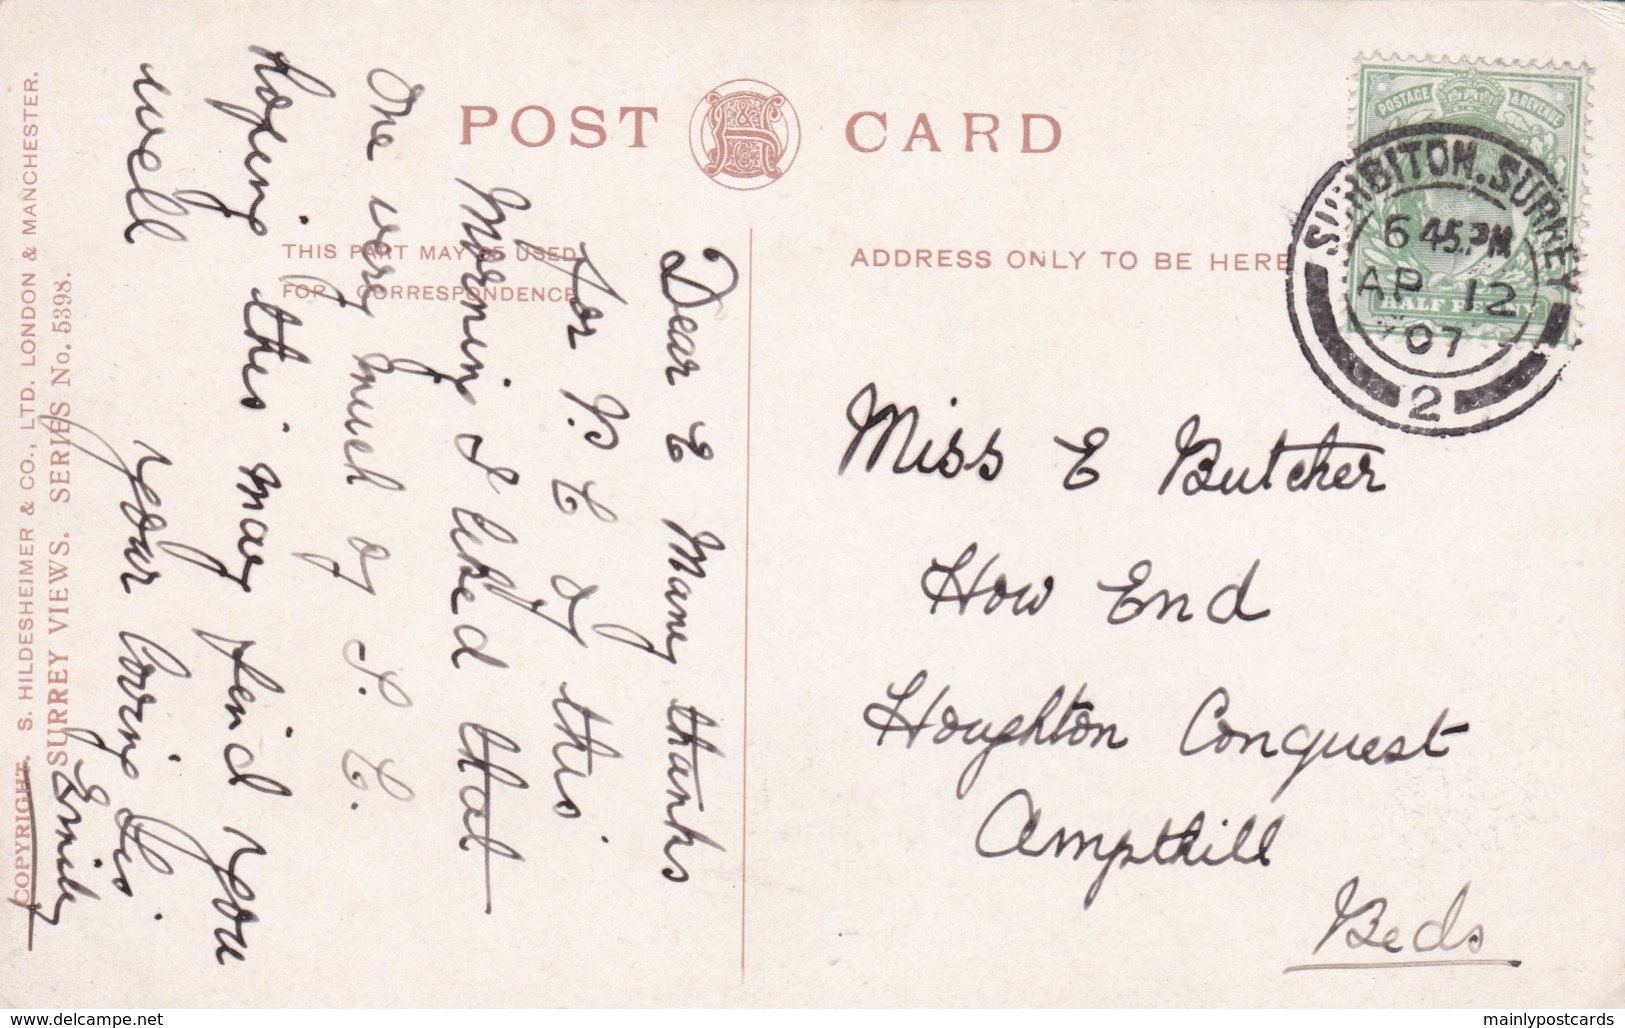 POST CARD
THIS PART MAY BE USED
FOR CORRESPONDENCE
ADDRESS ONLY TO BE HERE
POSTAGE & REVENUE
HALF PENNY
SURBITON. SURREY
6 45 PM
AP 12
07
2
Dear E Many thanks
for P. C of this
Morning I liked that
One very much of P. C.
hoping this may find you
well
Your loving Sis
Emily
Miss E Butcher
How End
Houghton Conquest
Ampthill
Beds
COPYRIGHT. S. HILDESHEIMER & CO., LTD. LONDON & MANCHESTER.
SURREY VIEWS. SERIES No. 5398.
www.delcampe.net
mainlypostcards